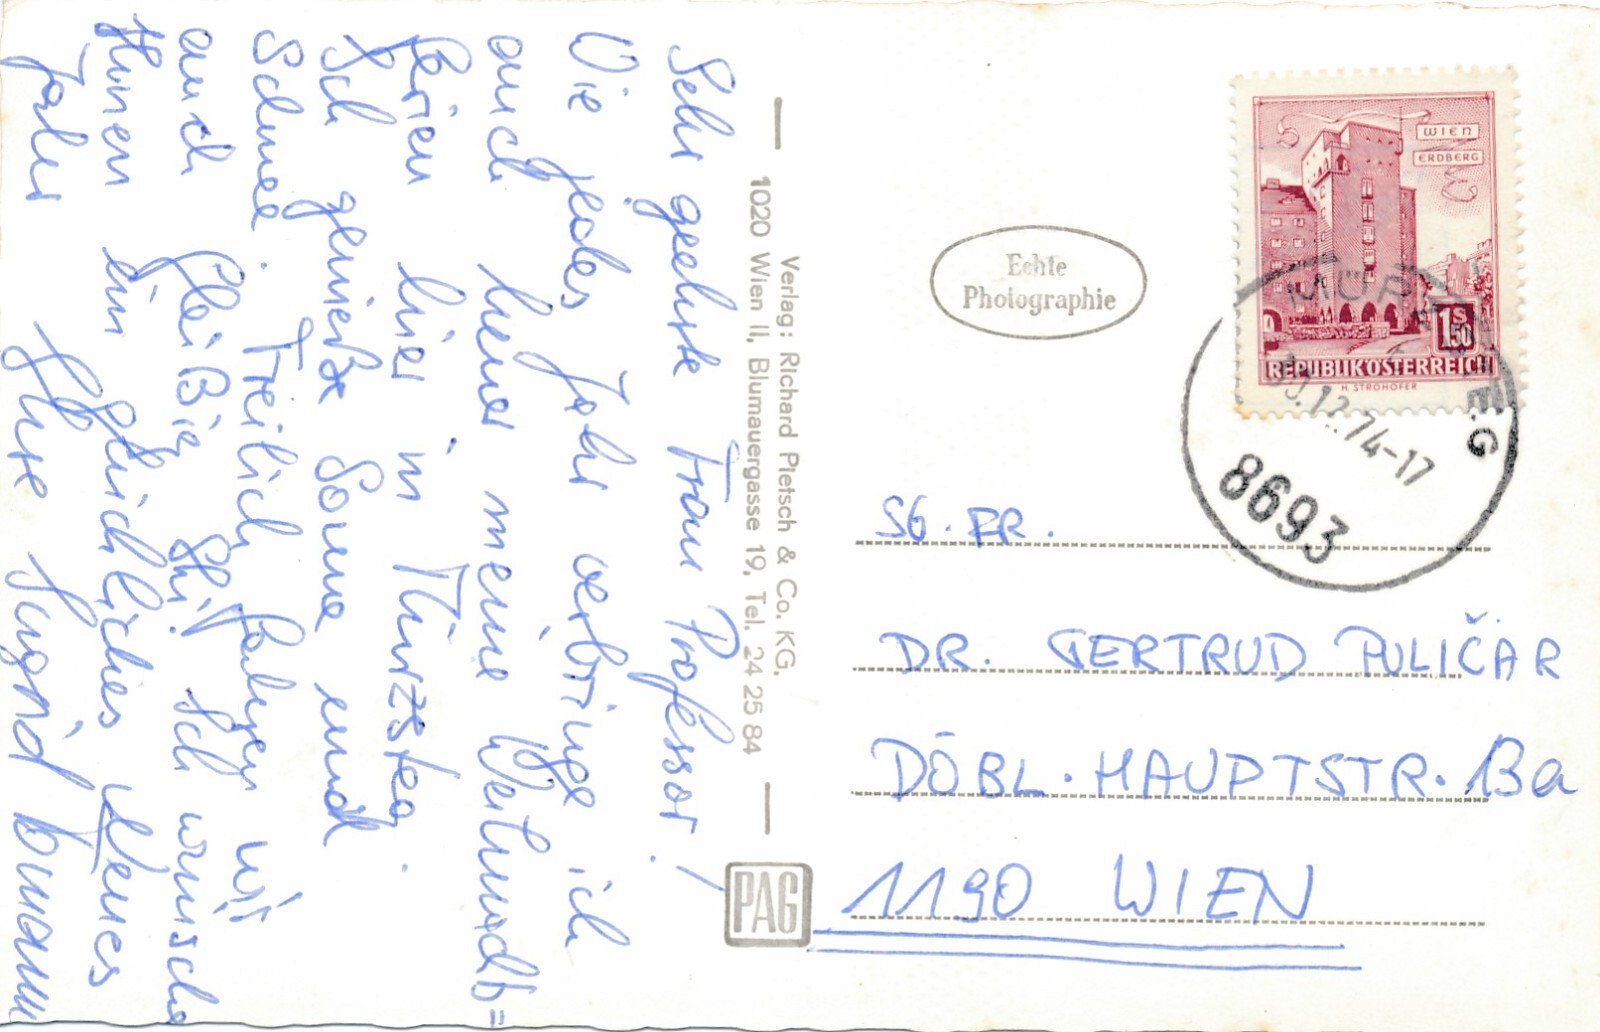 Sehr geehrte Frau Professor!
Wie jedes Jahr verbringe ich
auch heuer meine Weihnachts=
ferien hier in Mürzsteg.
Ich genieße Sonne und
Schnee. Freilich fahren wir
auch fleißig Ski. Ich wünsche
Ihnen ein glückliches Neues
Jahr Ihre Sigrid
Verlag: Richard Pietsch & Co. KG.
1020 Wien II, Blumauergasse 19, Tel. 24 25 84
PAG
Echte
Photographie
WIEN
ERDBERG
1S50
REPUBLIK ÖSTERREICH
H. STROHOFER
MÜRZSTEG
30.12.74-17
8693
SG. FR.
DR. GERTRUD PULIČAR
DÖBL. HAUPTSTR. 13a
1190 WIEN